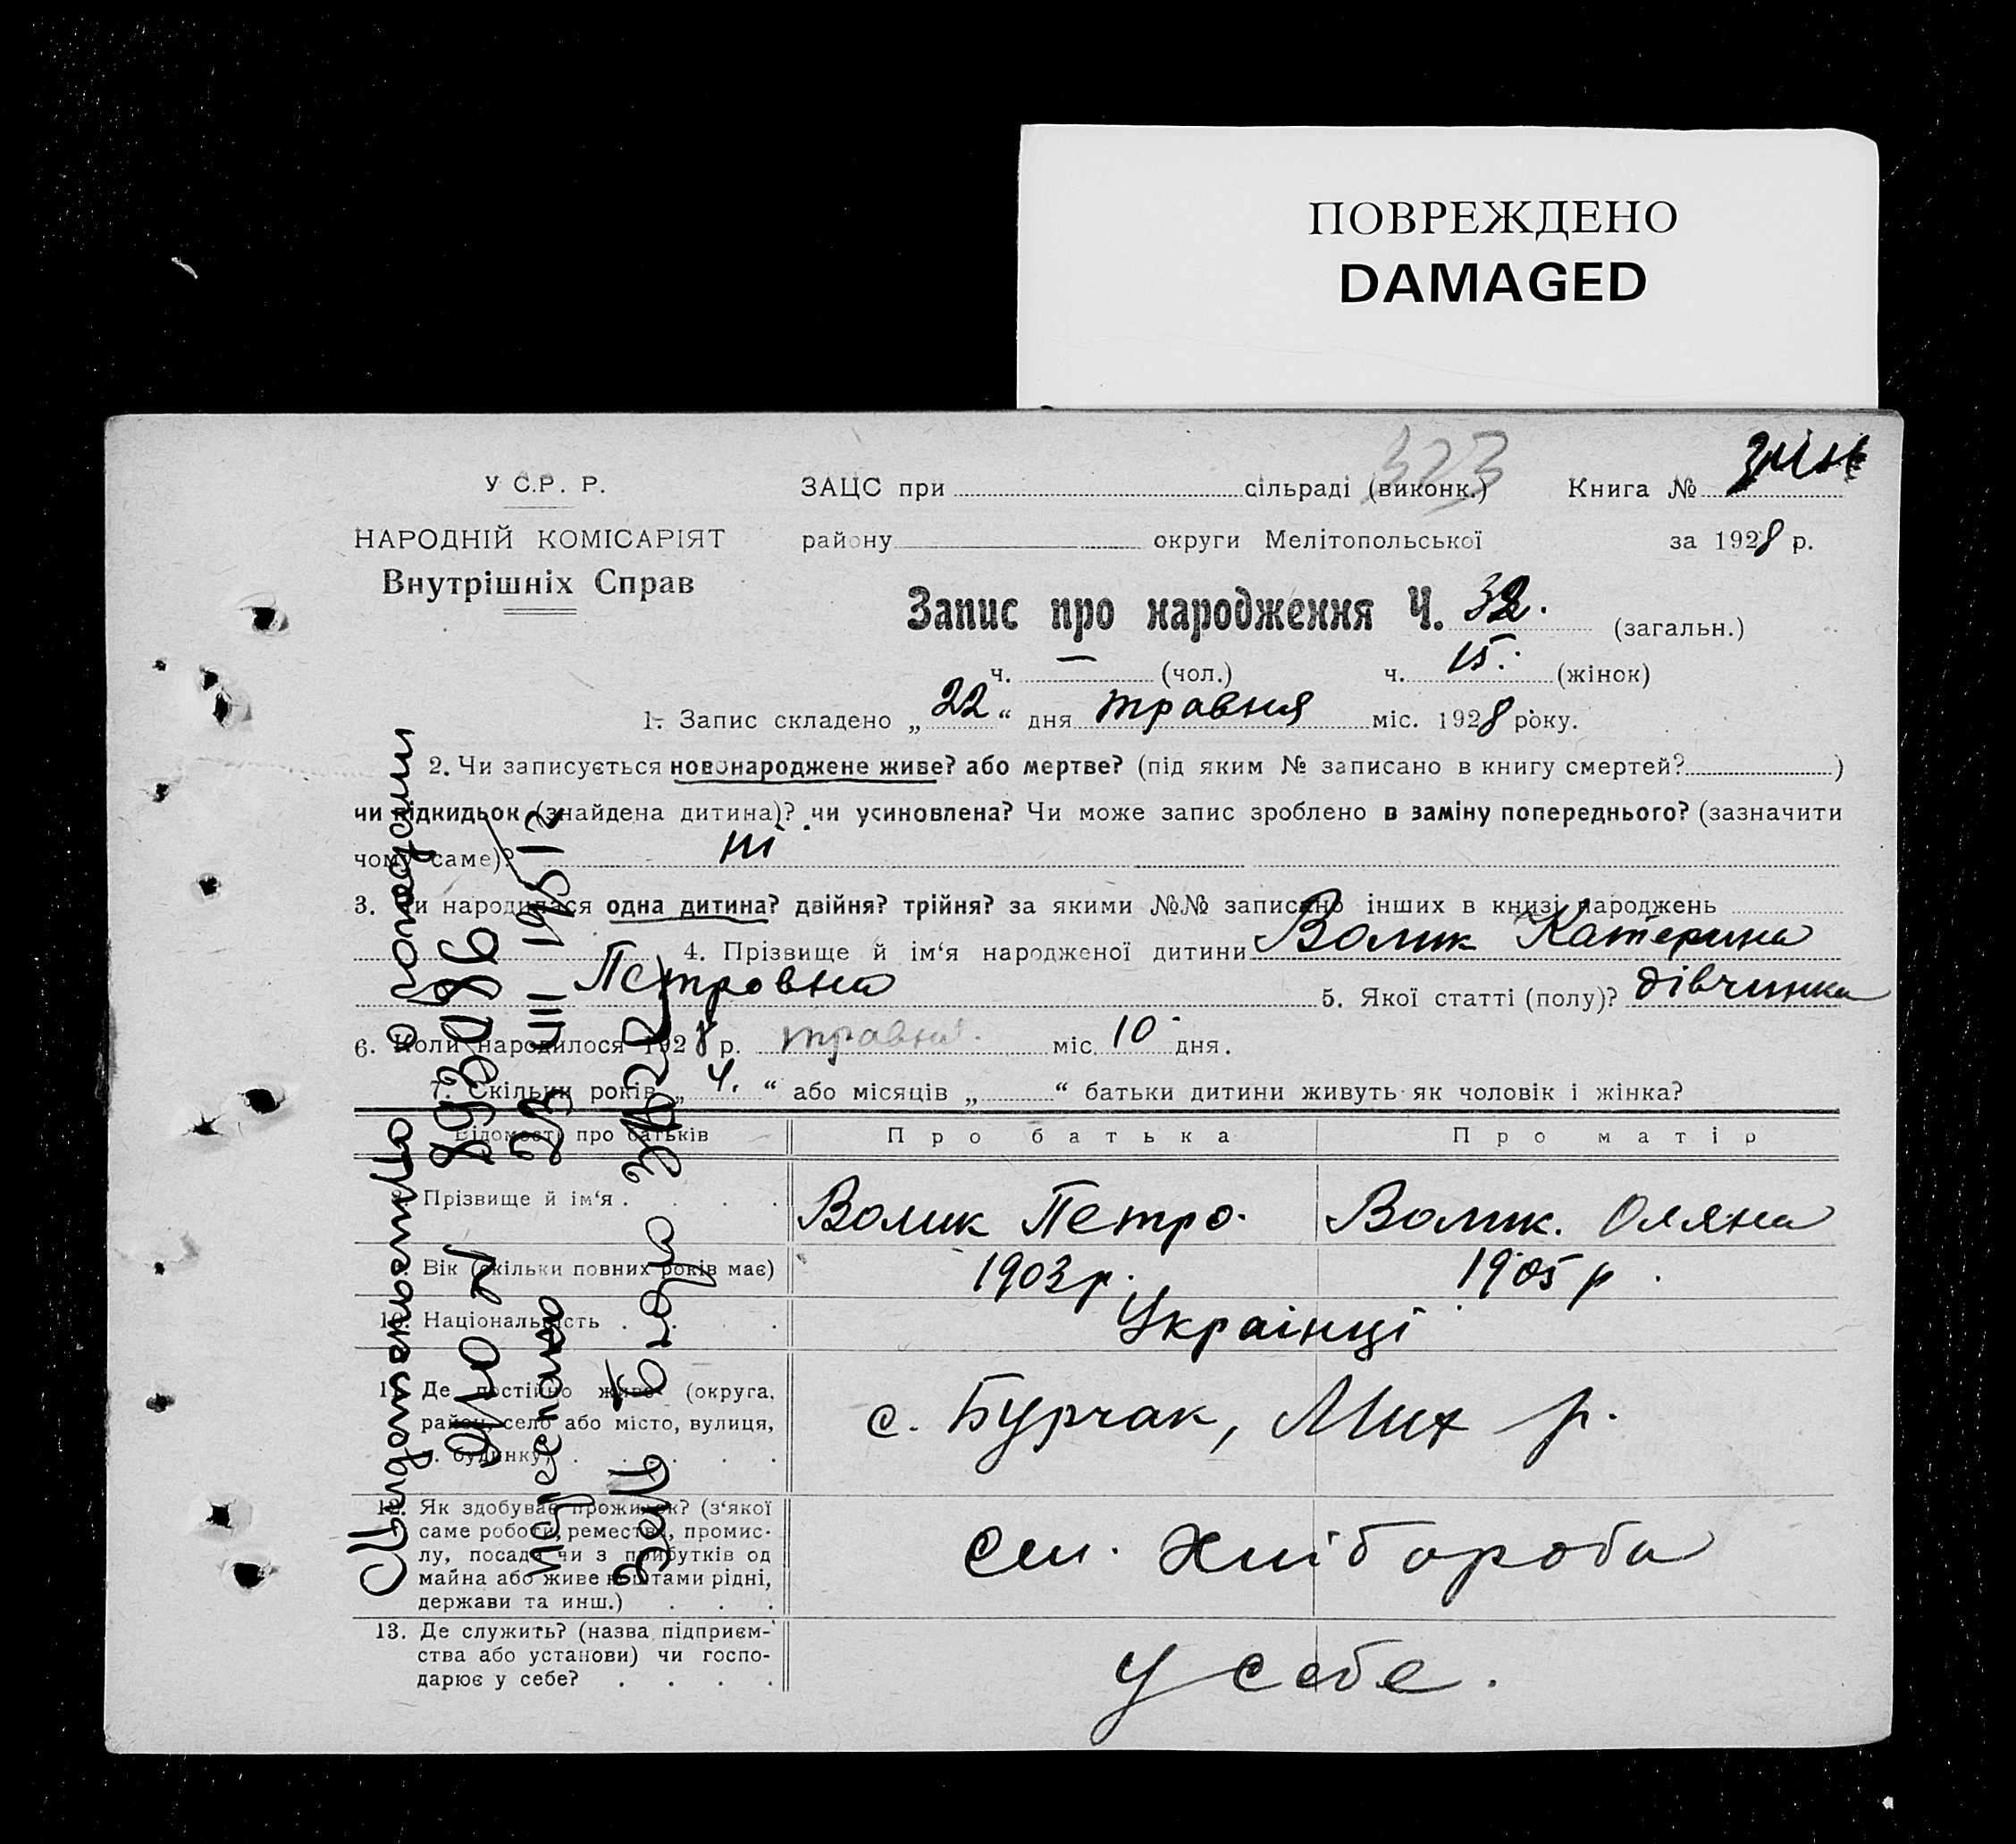 ПОВРЕЖДЕНО
DAMAGED
323
У С.Р. Р.
ЗАЦС при сільраді (виконк.) Книга №
НАРОДНІЙ КОМІСАРІЯТ
району округи Мелітопольської за 1928 р.
Внутрішніх Справ
Запис про народження Ч. 32. (загальн.)
ч. — (чол.) ч. 15. (жінок)
1. Запис складено „22“ дня травня міс. 1928 року.
2. Чи записується новонароджене живе? або мертве? (під яким № записано в книгу смертей? )
чи підкидьок (знайдена дитина)? чи усиновлена? Чи може запис зроблено в заміну попереднього? (зазначити
чому саме)? ні
3. Чи народилася одна дитина? двійня? трійня? за якими №№ записано інших в книзі народжень
4. Прізвище й ім‘я народженої дитини Волик Катерина
Петровна 5. Якої статті (полу)? дівчинка
6. Коли народилося 1928 р. травня міс. 10 дня.
7. Скільки років „4.“ або місяців „ “ батьки дитини живуть як чоловік і жінка?
Відомості про батьків Про батька Про матір
Прізвище й ім‘я . . . . Волик Петро. Волик. Оляна
Вік (скільки повних років має) 1903р. 1905р.
10. Національність . . . . Українці
11. Де постійно живе (округа,
район, село або місто, вулиця,
будинку) . . . . .
с. Бурчак, Мих р.
12. Як здобуває прожиток? (з‘якої
саме роботи, ремества, промис-
лу, посади чи з прибутків од
майна або живе коштами рідні,
держави та инш.) . . .
сел. хлібороба
13. Де служить? (назва підприєм-
ства або установи) чи госпо-
дарює у себе? . . . .
у себе.
Свидетельство о рождении
893086